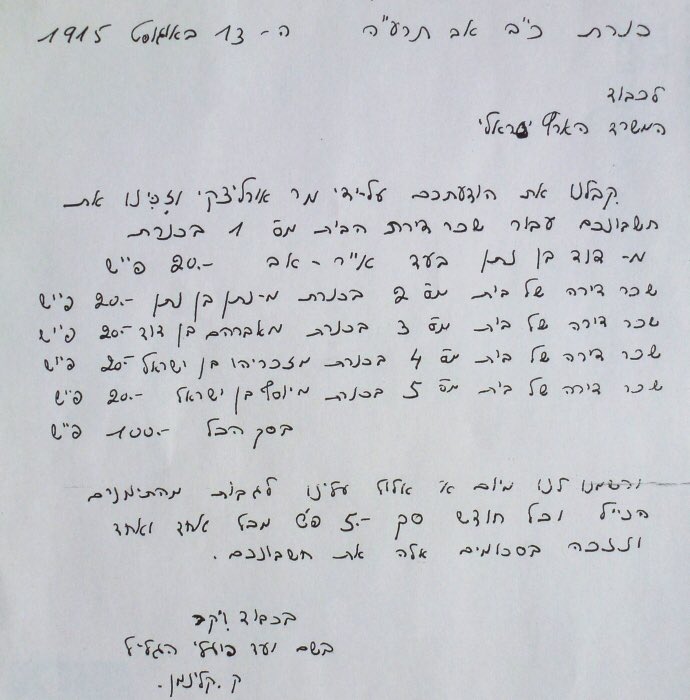 כנרת כ"ב אב תרע"ה ה- 13 באוגוסט 1915
לכבוד
המשרד הארץ ישראלי
קבלנו את הודעתכם על-ידי מר אורליצקי וזכינו את
חשבונכם עבור שכר דירת הבית מס 1 בכנרת
מ- דוד בן נתן בעד אי"ר - אב 20.- פ"ש
שכר דירה של בית מס 2 בכנרת מ-נתן בן נתן 20.- פ"ש
שכר דירה של בית מס 3 בכנרת מאברהם בן דוד 20.- פ"ש
שכר דירה של בית מס 4 בכנרת מזכריהו בן ישראל 20.- פ"ש
שכר דירה של בית מס 5 בכנרת מיוסף בן ישראל 20.- פ"ש
בסך הכל 100.- פ"ש
ורשמנו לנו מיום א' אלול עלינו לגבות מהתימנים
הנ"ל וכל חודש סך 5.- פ"ש מכל אחד ואחד
ולזכה בסכומים אלה את חשבונכם.
בכבוד ויקר
בשם ועד פועלי הגליל
ק. קלינמן.